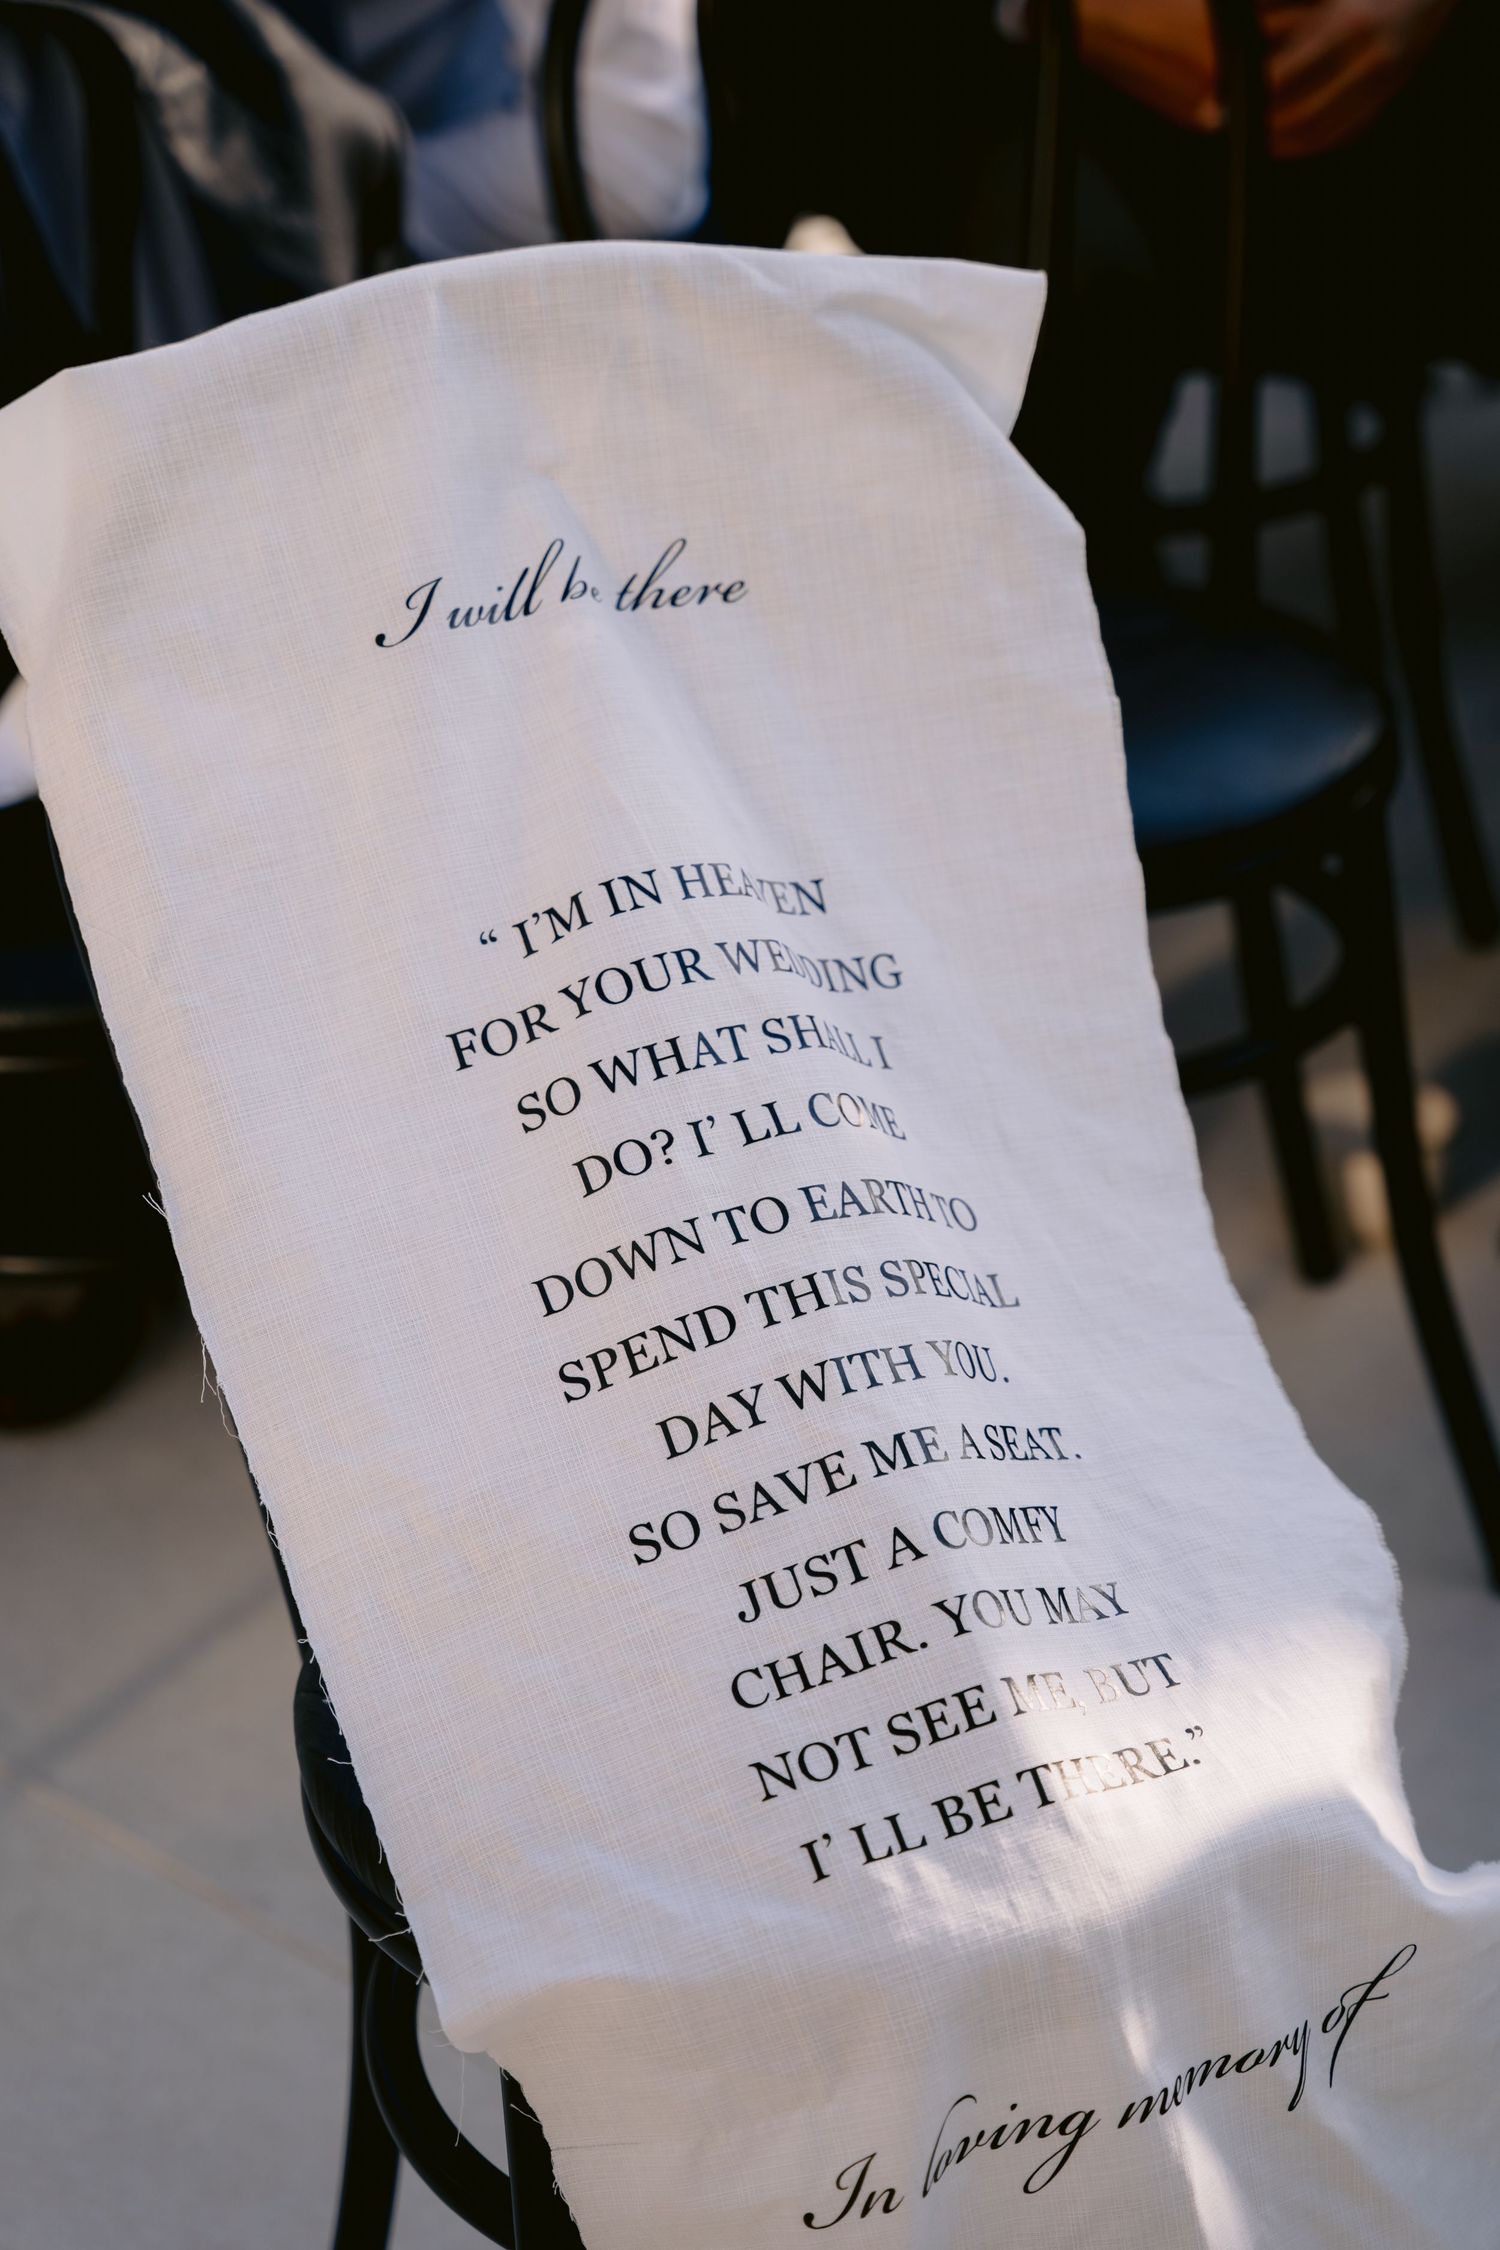 I will be there
“ I’M IN HEAVEN
FOR YOUR WEDDING
SO WHAT SHALL I
DO? I’ LL COME
DOWN TO EARTH TO
SPEND THIS SPECIAL
DAY WITH YOU.
SO SAVE ME A SEAT.
JUST A COMFY
CHAIR. YOU MAY
NOT SEE ME, BUT
I’ LL BE THERE.”
In loving memory of